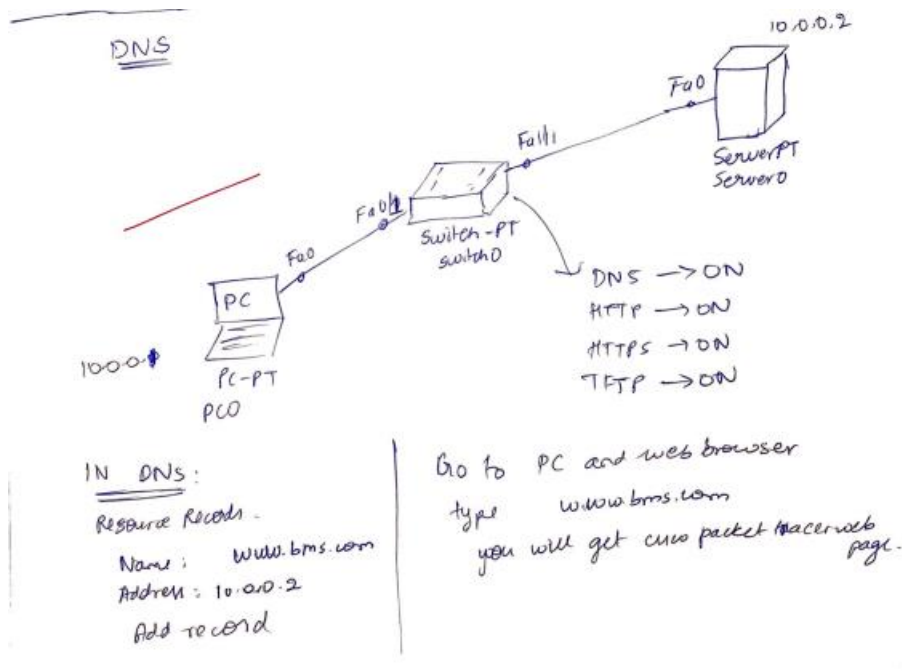 DNS
10.0.0.2
Fa0
Fa1/1
ServerPT
Server0
Fa0/1
Switch-PT
switch0
Fa0
PC
10.0.0.1
PC-PT
PC0
DNS → ON
HTTP → ON
HTTPS → ON
TFTP → ON
IN DNS:
Resource Records.
Name: www.bms.com
Address: 10.0.0.2
Add record
Go to PC and web browser
type www.bms.com
you will get cisco packet tracer web
page.